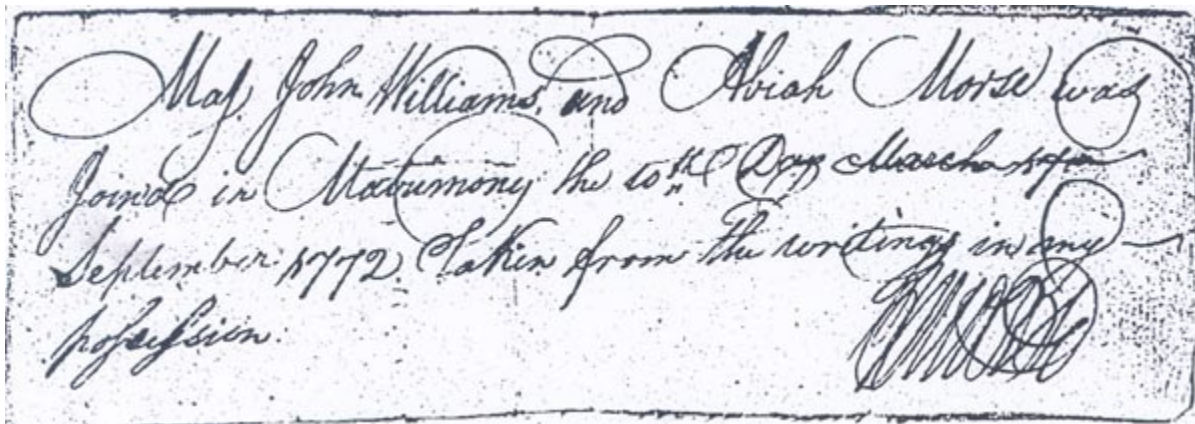 Maj. John Williams. and Abiah Morse was
Joind in Matrimony the 10th Day March 17
September 1772. Taken from the writings in my
possession